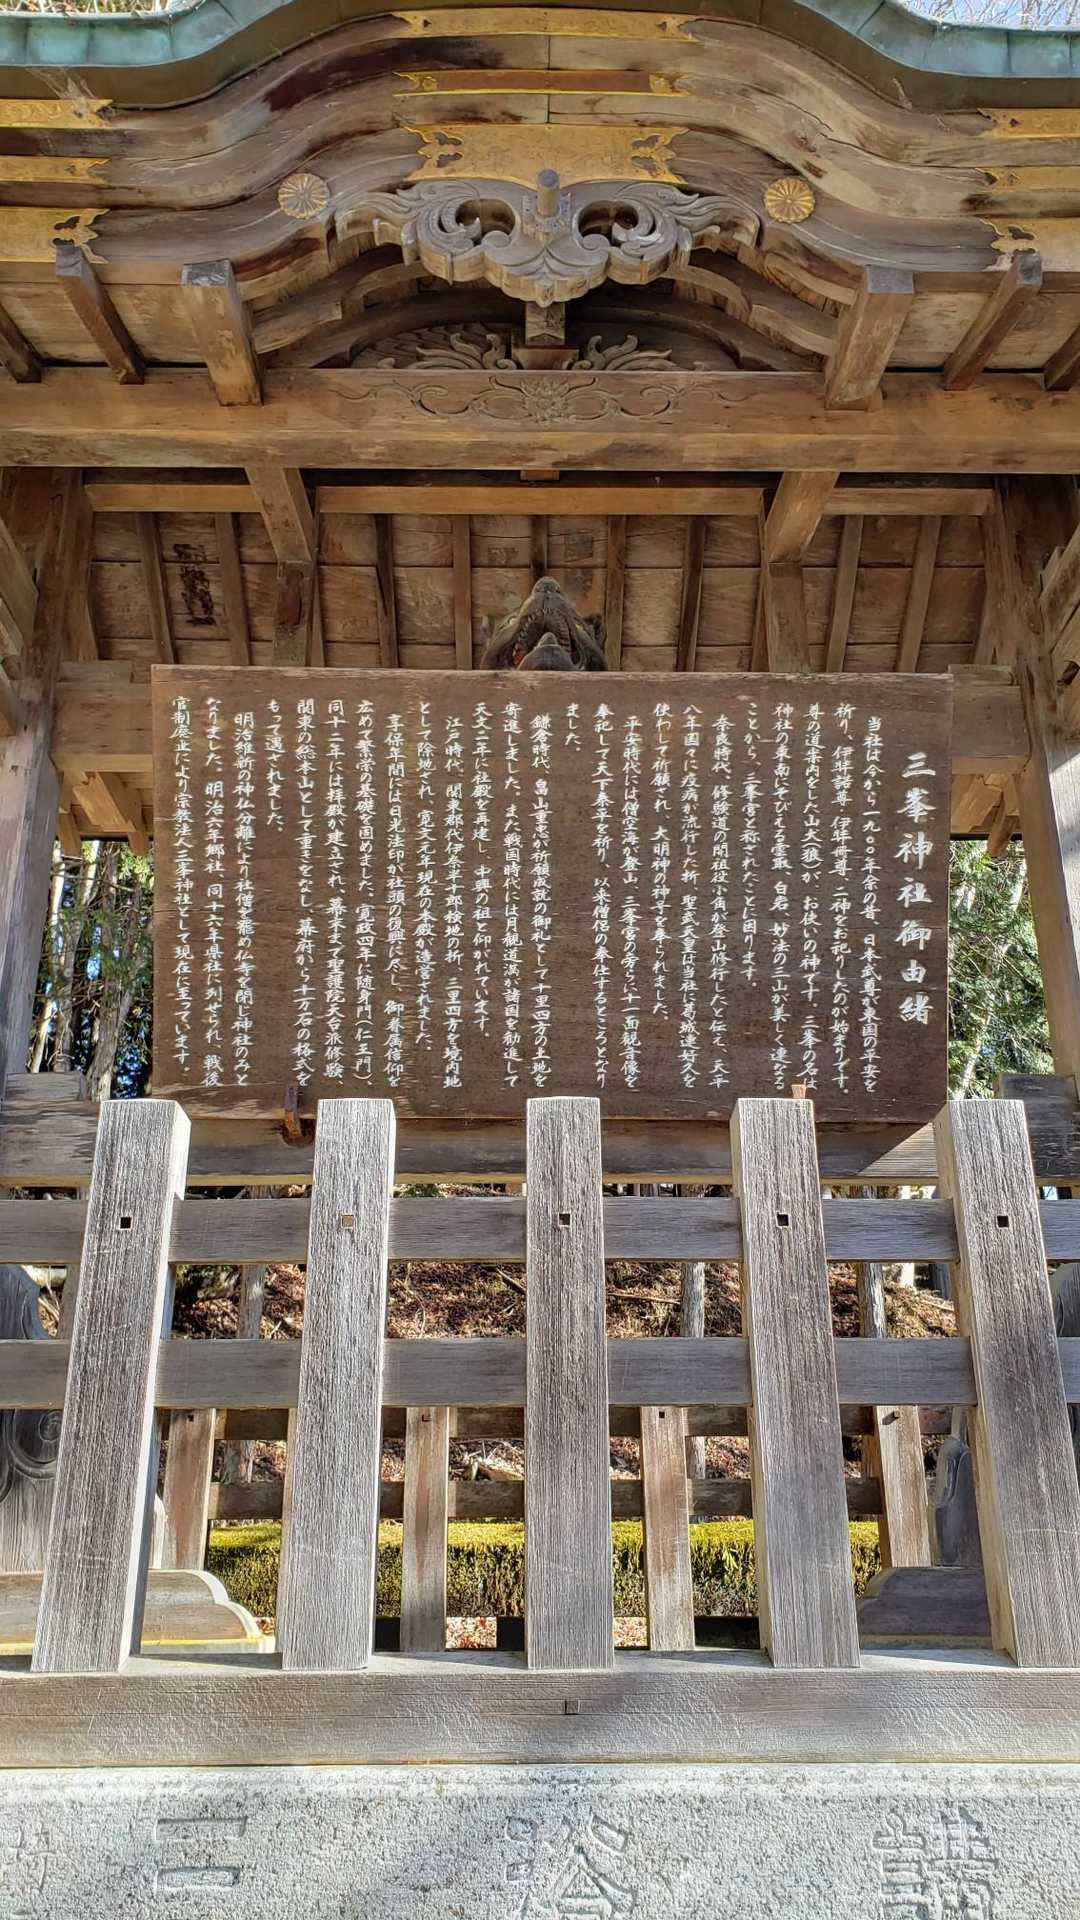 三峯神社御由緒
当社は今から一九〇〇年余の昔、日本武尊が東国の平安を
祈り、伊弉諾尊・伊弉册尊、二神をお祀りしたのが始まりです。
尊の道案内をした山犬(狼)が、お使いの神です。三峯の名は
神社の東南にそびえる雲取、白岩、妙法の三山が美しく連なる
ことから、三峯宮と称されたことに因ります。
奈良時代、修験道の開祖役小角が登山修行したと伝え、天平
八年国々に疫病が流行した折、聖武天皇は当社に葛城連好久を
使わして祈願され、大明神の神号を奉られました。
平安時代には僧空海が登山、三峯宮の傍らに十一面観音像を
奉祀して天下泰平を祈り、以来僧侶の奉仕するところとなり
ました。
鎌倉時代、畠山重忠が祈願成就の御礼として十里四方の土地を
寄進しました。また戦国時代には月観道満が諸国を勧進して
天文二年に社殿を再建し、中興の祖と仰がれています。
江戸時代、関東郡代伊奈半十郎検地の折、三里四方を境内地
として除地され、寛文元年現在の本殿が造営されました。
享保年間には日光法印が社頭の復興に尽し、御眷属信仰を
広めて繁栄の基礎を固めました。寛政四年に随身門(仁王門)、
同十二年には拝殿が建立され、幕末まで聖護院天台派修験、
関東の総本山として重きをなし、幕府から十万石の格式を
もって遇されました。
明治維新の神仏分離により社僧を罷め仏寺を閉じ神社のみと
なりました。明治六年郷社、同十六年県社に列せられ、戦後
官制廃止により宗教法人三峯神社として現在に至っています。